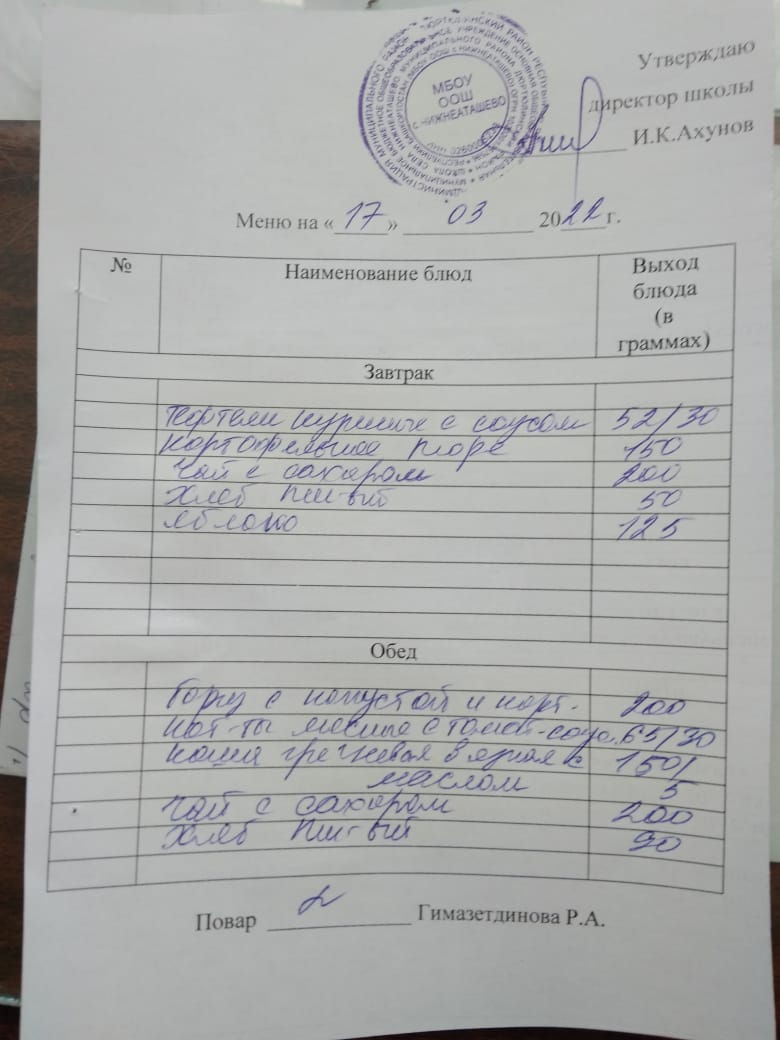 МБОУ
ООШ
с НИЖНЕАТАШЕВО
Утверждаю
директор школы
И.К.Ахунов
Меню на « 17 » 03 2022 г.
№ Наименование блюд Выход
блюда
(в
граммах)
Завтрак
Тефтели куриные с соусом 52/30
Картофельное пюре 150
Чай с сахаром 200
Хлеб пш-ый 50
Яблоко 125
Обед
Борщ с капустой и карт. 200
Кот-ты мясные с томат-соус. 65/30
Каша гречневая вязкая с 150/
маслом 5
Чай с сахаром 200
Хлеб пш-ый 90
Повар Гимазетдинова Р.А.